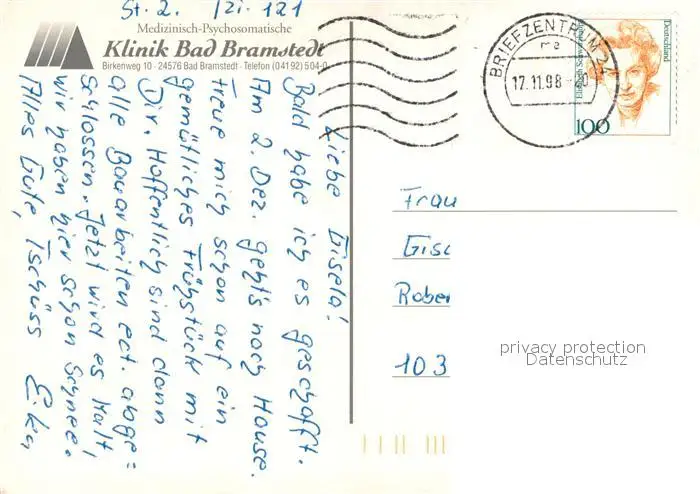 St. 2. Zi. 121
Medizinisch-Psychosomatische
Klinik Bad Bramstedt
Birkenweg 10 · 24576 Bad Bramstedt · Telefon (04192) 504-0
Liebe Gisela!
Bald habe ich es geschafft.
Am 2. Dez. geht's nach Hause.
Freue mich schon auf ein
gemütliches Frühstück mit
Dir. Hoffentlich sind dann
alle Bauarbeiten ect. abge=
schlossen. Jetzt wird es kalt,
wir haben hier schon Schnee.
Alles Gute, Tschüss Eika
BRIEFZENTRUM 24
me
17.11.98-20
Deutschland
100
Frau
Gise
Rober
103
privacy protection
Datenschutz